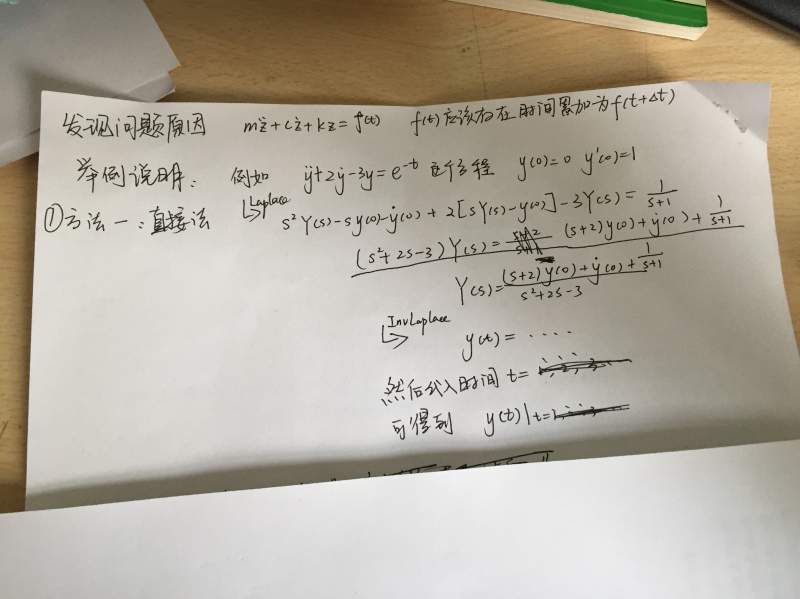 发现问题原因 mz̈+cż+kz=f(t) f(t)应该存在时间累加为f(t+Δt)
举例说明: 例如 ÿ+2ẏ-3y=e^-t 这个方程 y(0)=0 y'(0)=1
①方法一:直接法 Laplace s²Y(s)-sy(0)-ẏ(0)+2[sY(s)-y(0)]-3Y(s)=1/(s+1)
(s²+2s-3)Y(s)= (s+2)y(0)+ẏ(0)+1/(s+1)
Y(s)=((s+2)y(0)+ẏ(0)+1/(s+1))/(s²+2s-3)
InvLaplace y(t)=····
然后代入时间t=
可得到 y(t)|t=